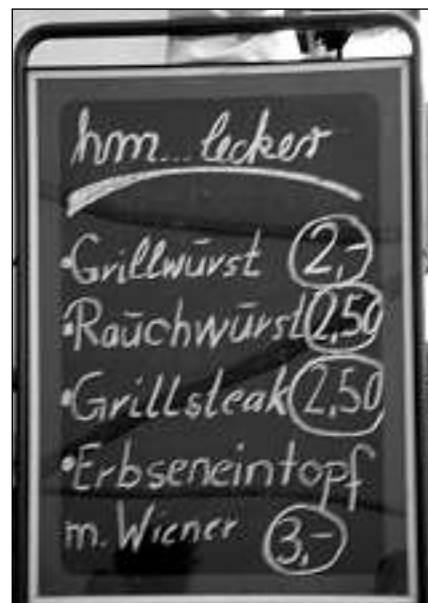 hm... lecker
• Grillwūrst 2,-
• Raūchwūrst 2,50
• Grillsteak 2,50
• Erbseneintopf
m. Wiener 3,-